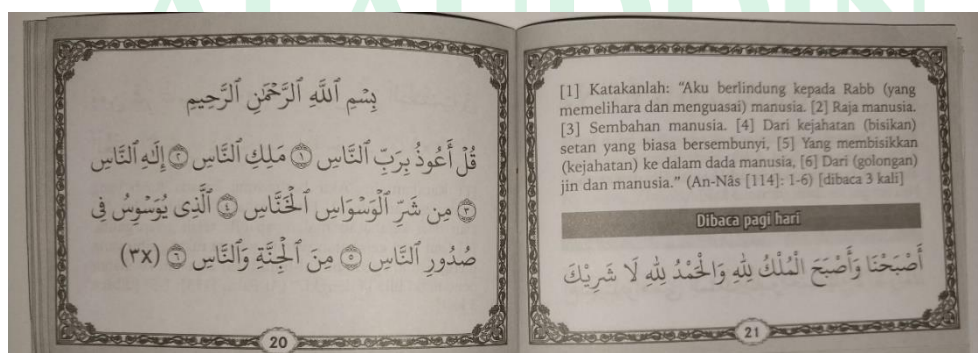 بِسْمِ ٱللَّهِ ٱلرَّحْمَٰنِ ٱلرَّحِيمِ
قُلْ أَعُوذُ بِرَبِّ ٱلنَّاسِ ١ مَلِكِ ٱلنَّاسِ ٢ إِلَٰهِ ٱلنَّاسِ
٣ مِن شَرِّ ٱلْوَسْوَاسِ ٱلْخَنَّاسِ ٤ ٱلَّذِى يُوَسْوِسُ فِى
صُدُورِ ٱلنَّاسِ ٥ مِنَ ٱلْجِنَّةِ وَٱلنَّاسِ ٦ (٣x)
20
[1] Katakanlah: “Aku berlindung kepada Rabb (yang
memelihara dan menguasai) manusia. [2] Raja manusia.
[3] Sembahan manusia. [4] Dari kejahatan (bisikan)
setan yang biasa bersembunyi, [5] Yang membisikkan
(kejahatan) ke dalam dada manusia, [6] Dari (golongan)
jin dan manusia.” (An-Nâs [114]: 1-6) [dibaca 3 kali]
Dibaca pagi hari
أَصْبَحْنَا وَأَصْبَحَ الْمُلْكُ لِلهِ وَالْحَمْدُ لِلهِ لَا شَرِيْكَ
21